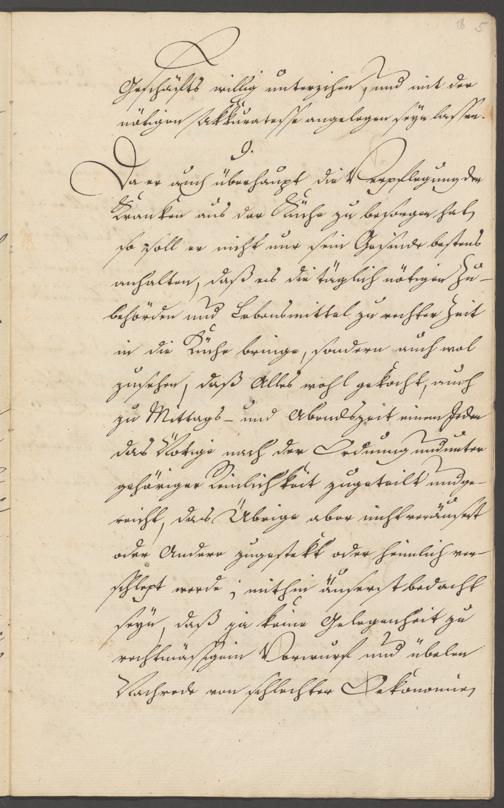 18 5
Geschäfts willig unterziehen, und mit der
nötigen Akkuratesse angelegen seyn lassen.
9.
Da er auch überhaupt die Verpflegung der
Kranken aus der Küche zu besorgen hat,
so soll er nicht nur sein Gesinde bestens
anhalten, daß es die täglich nötigen Zu-
behörden und Lebensmittel zu rechter Zeit
in die Küche bringe, sondern auch wol
zusehen, daß Alles wohl gekocht, auch
zu Mittags- und Abendszeit einem Jeden
das Nötige nach der Ordnung und unter
gehöriger Reinlichkeit zugeteilt und ge-
reicht, das Übrige aber nicht veräußert
oder Andern zugestekt oder heimlich ver-
schlept werde; mithin äuserst bedacht
seyn, daß ja keine Gelegenheit zu
rechtmässigem Vorwurf und übelen
Nachrede von schlechter Oekonomie,